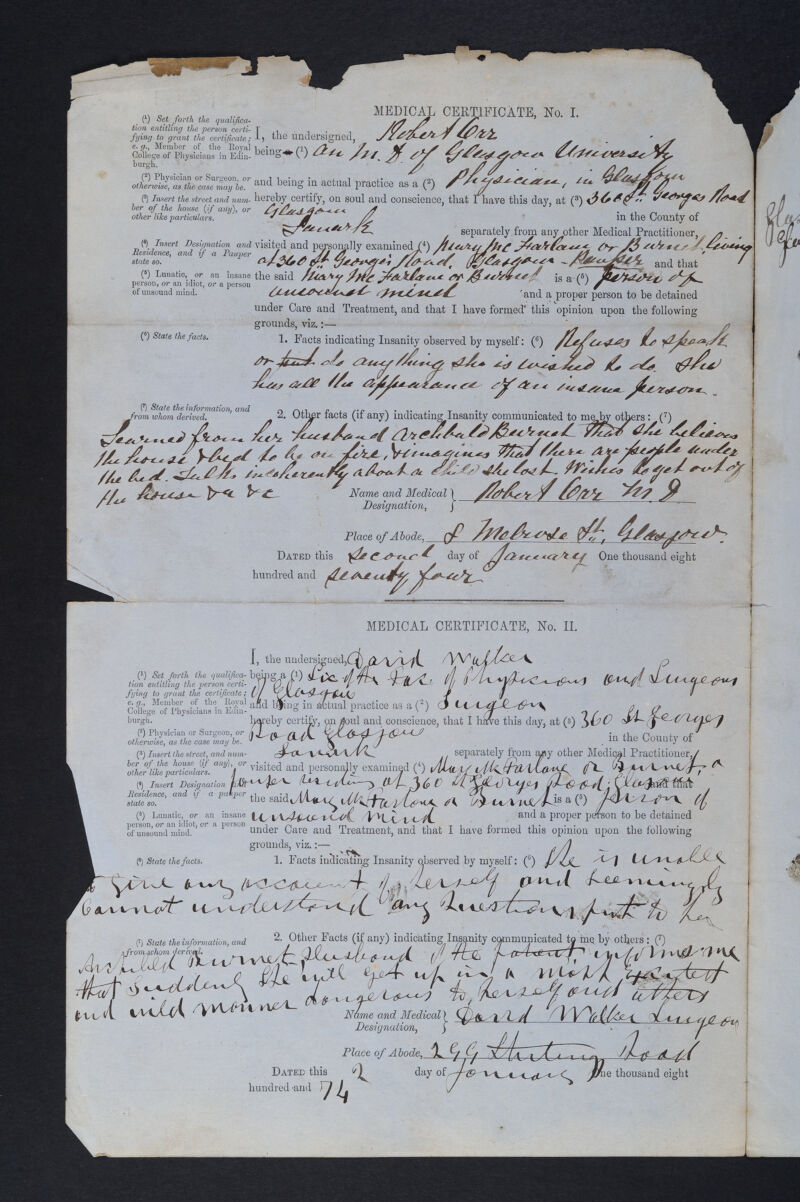 MEDICAL CERTIFICATE, No. I.
(1) Set forth the qualifica-
tion entitling the person certi-
fying to grant the certificate;
e.g., Member of the Royal
College of Physicians in Edin-
burgh.
(2) Physician or Surgeon, or
otherwise, as the case may be.
(3) Insert the street and num-
ber of the house (if any), or
other like particulars.
(4) Insert Designation and
Residence, and if a Pauper
state so.
(5) Lunatic, or an insane
person, or an idiot, or a person
of unsound mind.
I, the undersigned, Robert Orr
being (1) an M. D. of Glasgow University
and being in actual practice as a (2) Physician, in Glasgow
hereby certify, on soul and conscience, that I have this day, at (3) 360 St. Georges Road
Glasgow in the County of
Lanark separately from any other Medical Practitioner,
visited and personally examined (4) Mary McFarlane or Burnet, living
at 360 St. Georges Road, Glasgow - Pauper and that
the said Mary McFarlane or Burnet is a (5) person of
unsound mind and a proper person to be detained
under Care and Treatment, and that I have formed this opinion upon the following
grounds, viz.:—
(6) State the facts.
1. Facts indicating Insanity observed by myself: (6) Refuses to speak
or but do anything she is wished to do. She
has all the appearance of an insane person.
(7) State the information, and
from whom derived.
2. Other facts (if any) indicating Insanity communicated to me by others: (7)
Learned from her husband Archibald Burnet that she believes
the house & bed to be on fire, & imagines that there are people under
the bed. Talks incoherently about a child she lost. Wishes to get out of
the house &c &c
Name and Medical Designation, Robert Orr M. D
Place of Abode, 8 Melrose St., Glasgow.
DATED this second day of January One thousand eight
hundred and seventy four
MEDICAL CERTIFICATE, No. II.
(1) Set forth the qualifica-
tion entitling the person certi-
fying to grant the certificate;
e.g., Member of the Royal
College of Physicians in Edin-
burgh.
(2) Physician or Surgeon, or
otherwise, as the case may be.
(3) Insert the street, and num-
ber of the house (if any), or
other like particulars.
(4) Insert Designation and
Residence, and if a pauper
state so.
(5) Lunatic, or an insane
person, or an idiot, or a person
of unsound mind.
I, the undersigned, David Walker
being a (1) Lic of the Fac of Physicians and Surgeons
of Glasgow
and being in actual practice as a (2) Surgeon
hereby certify, on soul and conscience, that I have this day, at (3) 360 St Georges
Road Glasgow in the County of
Lanark separately from any other Medical Practitioner,
visited and personally examined (4) Mary McFarlane or Burnet, a
pauper residing at 360 St Georges Road Glasgow and that
the said Mary McFarlane or Burnet is a (5) person of
unsound mind and a proper person to be detained
under Care and Treatment, and that I have formed this opinion upon the following
grounds, viz.:—
(6) State the facts.
1. Facts indicating Insanity observed by myself: (6) She is unable
to give any account of herself and seemingly
cannot understand any questions put to her
(7) State the information, and
from whom derived.
2. Other Facts (if any) indicating Insanity communicated to me by others: (7)
Archibald Burnet, Husband of the patient informs me
that suddenly she will get up in a most excited
and wild manner dangerous to herself and others
Name and Medical Designation, David Walker Surgeon
Place of Abode, Road
DATED this 2 day of January One thousand eight
hundred and 74